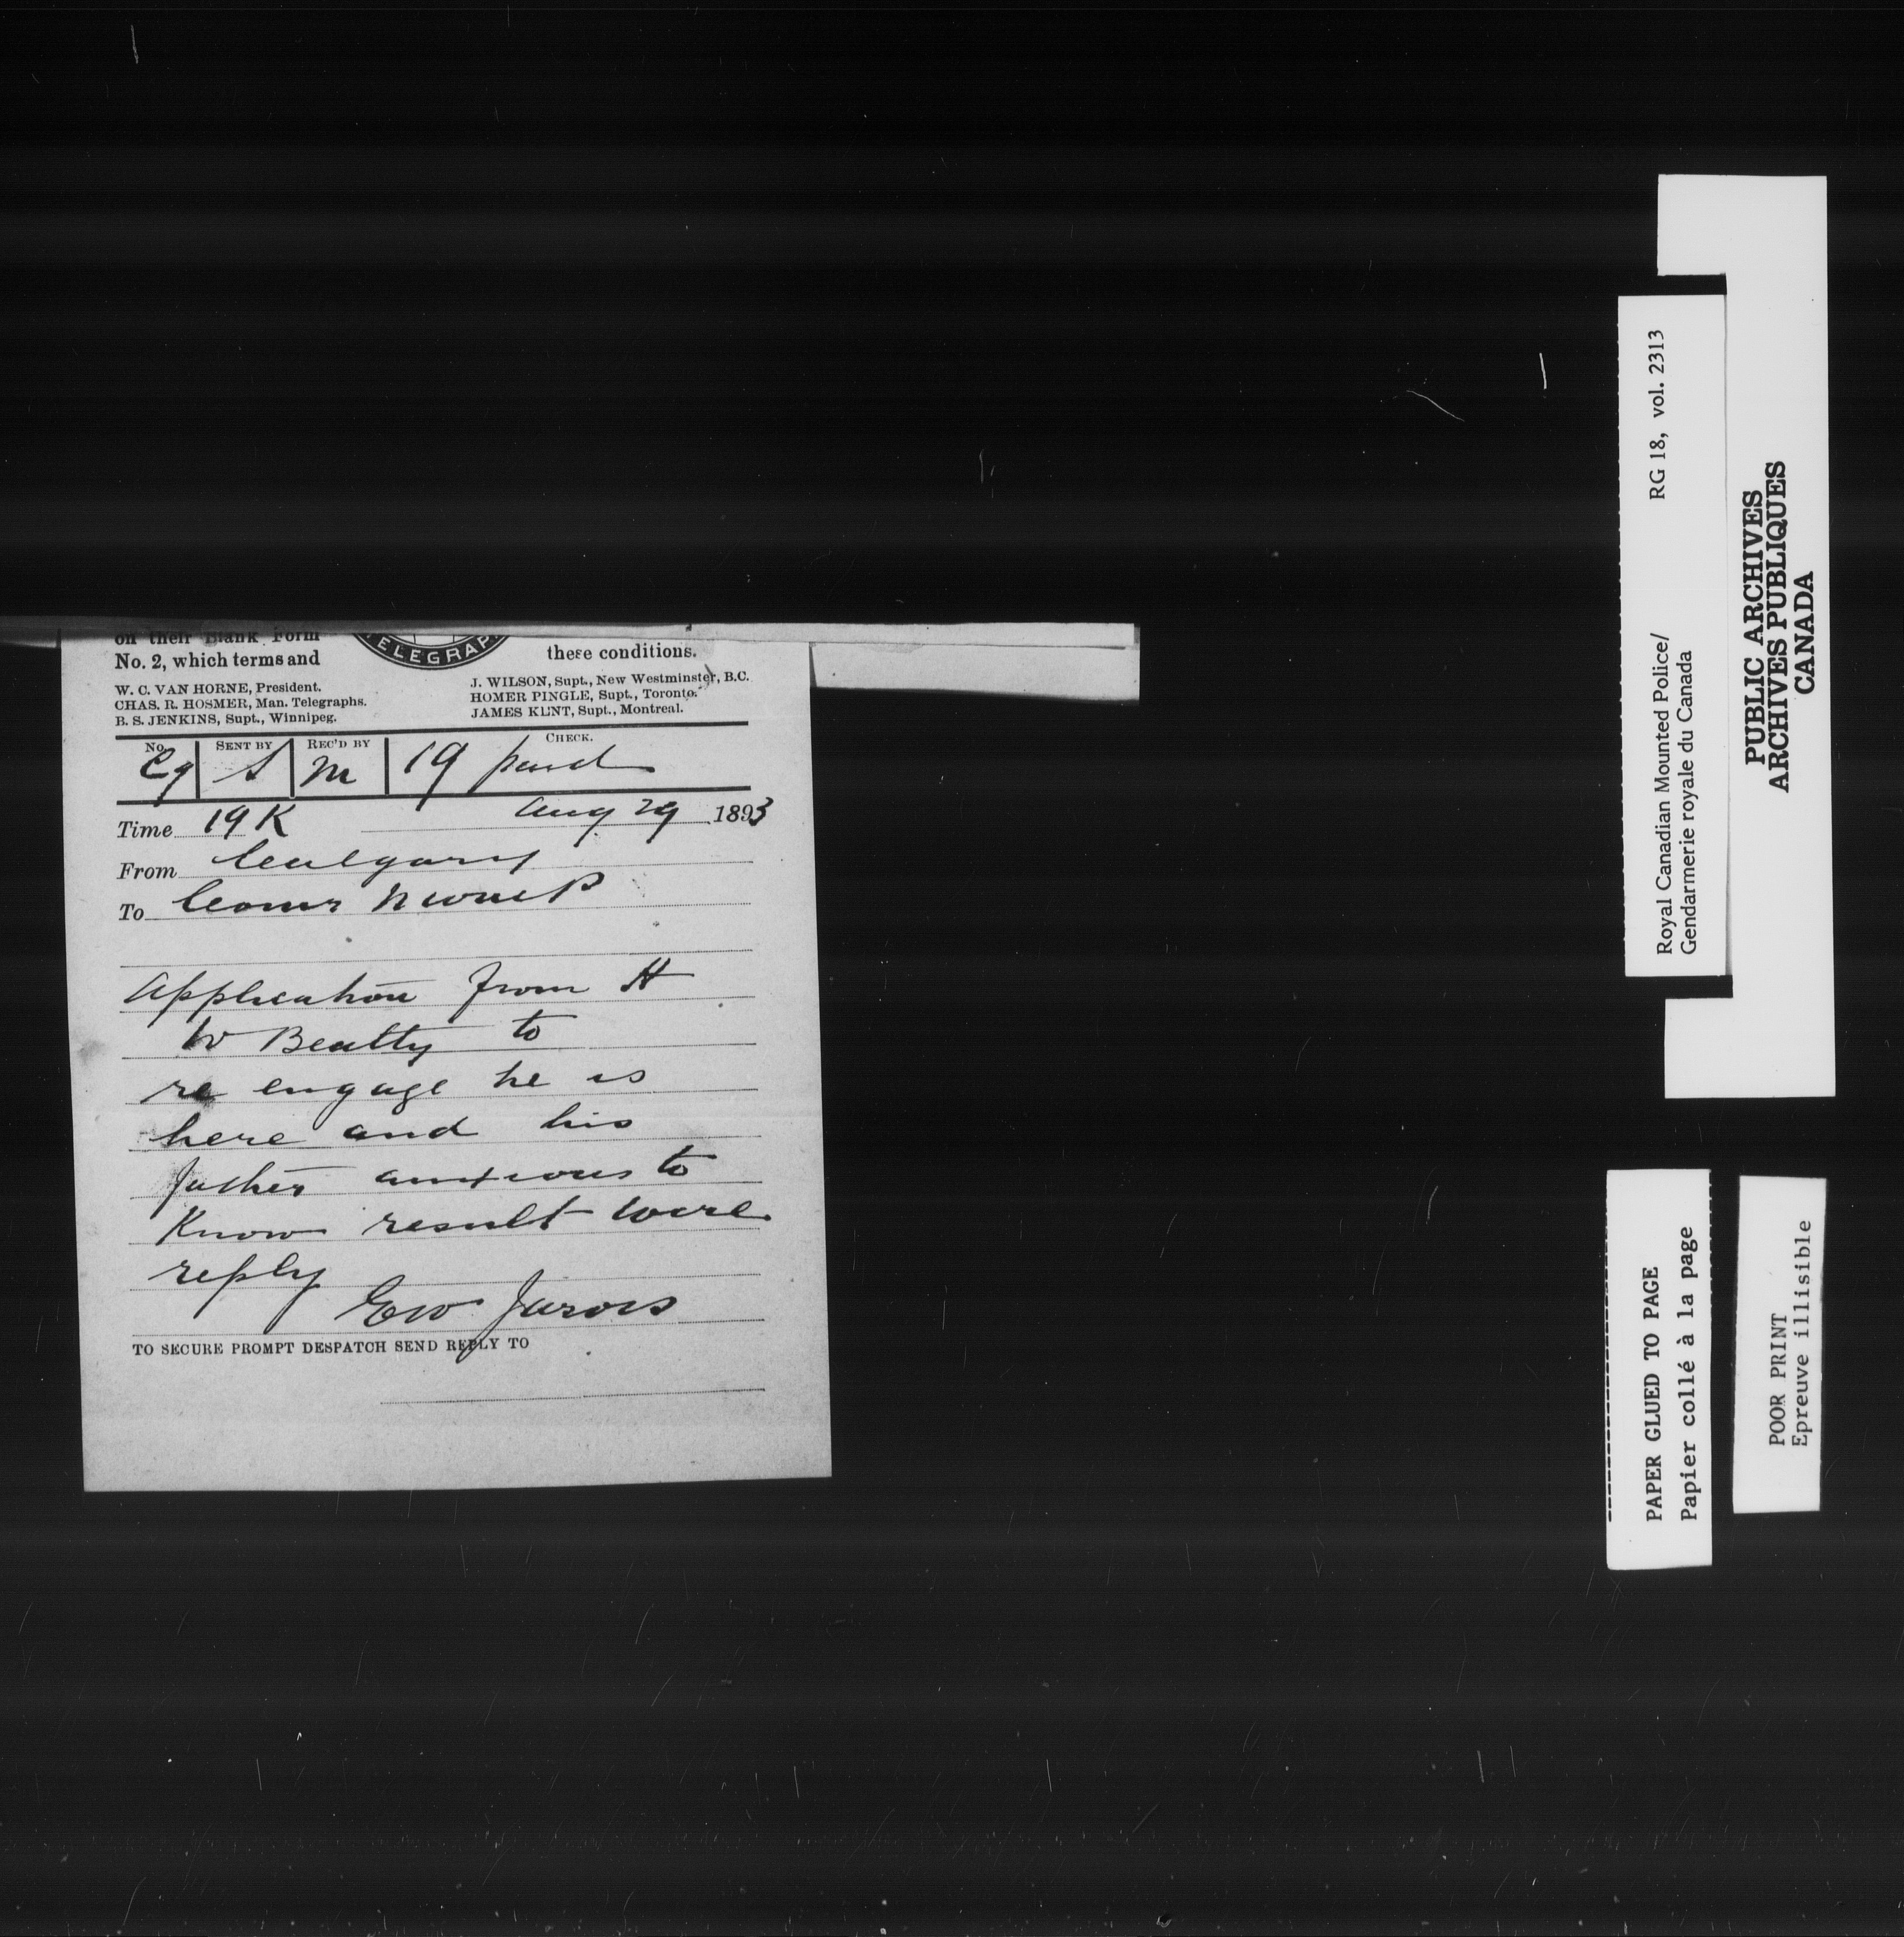 on their Blank Form
No. 2, which terms and
TELEGRAPH
these conditions.
W. C. VAN HORNE, President.
CHAS. R. HOSMER, Man. Telegraphs.
B. S. JENKINS, Supt., Winnipeg.
J. WILSON, Supt., New Westminster, B.C.
HOMER PINGLE, Supt., Toronto.
JAMES KENT, Supt., Montreal.
No. SENT BY REC'D BY CHECK.
S M 19 paid
Time 19 K Aug 29 1893
From Calgary
To Comr NWMP
Application from H
W Beatty to
re engage he is
here and his
father anxious to
Know result wire
reply
GW Jarvis
TO SECURE PROMPT DESPATCH SEND REPLY TO
Royal Canadian Mounted Police/ RG 18, vol. 2313
Gendarmerie royale du Canada
PUBLIC ARCHIVES
ARCHIVES PUBLIQUES
CANADA
PAPER GLUED TO PAGE
Papier collé à la page
POOR PRINT
Epreuve illisible